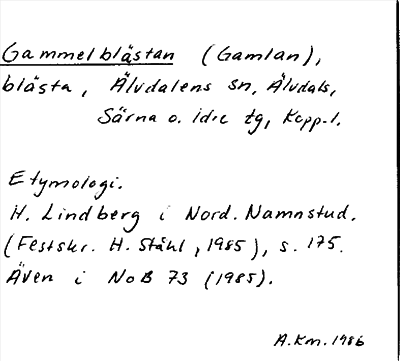 Gammelblästan (Gamlan),
blästa, Älvdalens sn, Älvdals,
Särna o. Idre tg, Kopp.l.
Etymologi.
H. Lindberg i Nord. Namnstud.
(Festskr. H. Ståhl, 1985), s. 175.
Även i NoB 73 (1985).
A.Km. 1986